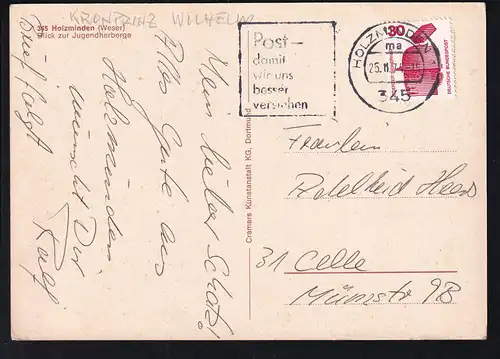 KRONPRINZ WILHELM
345 Holzminden (Weser)
Blick zur Jugendherberge
Mein lieber Schatz!
Alles Gute aus
Holzminden
wünscht Dir
Ralf
Brief folgt
Cramers Kunstanstalt KG, Dortmund
Post-
damit
wir uns
besser
verstehen
HOLZMINDEN
ma
25.11.74
345
30
DEUTSCHE BUNDESPOST
Fräulein
Adelheid
31 Celle
Münzstr 9B